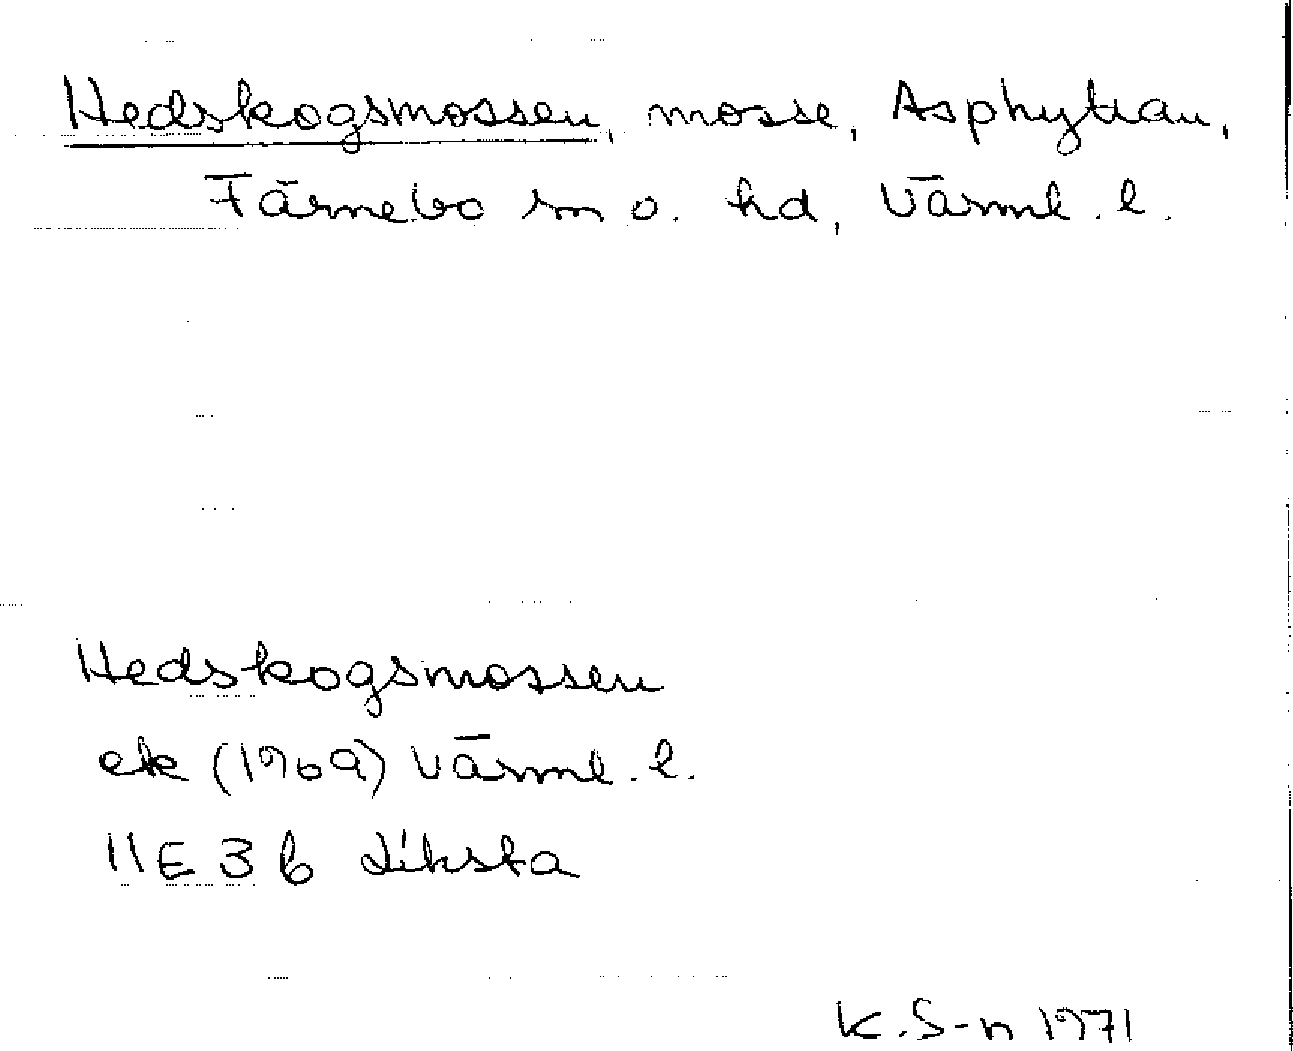 Hedskogsmossen, mosse, Asphyttan,
Färnebo sn o. hd, Värml. l.
Hedskogsmossen
ek (1969) Värml. l.
11E 3 b Liksta
K. S-n 1971